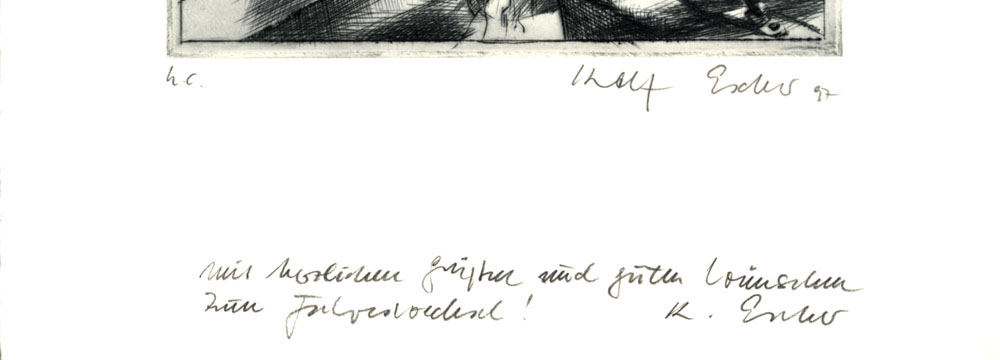 h.c. Rolf Escher 97
mit herzlichen Grüßen und guten Wünschen
zum Jahreswechsel! R. Escher